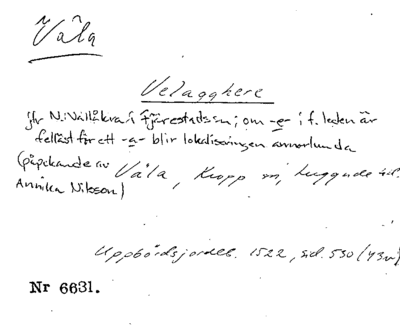 Våla
Velagghere
jfr N. Vallåkra i Fjärestads sn; om -e- i f. leden är
felläst för ett -a- blir lokaliseringen annorlunda
(påpekande av Våla, Kropp sn, Luggude hd.
Annika Nilsson)
Uppbördsjordeb. 1522, sid. 530 (43v)
Nr 6631.